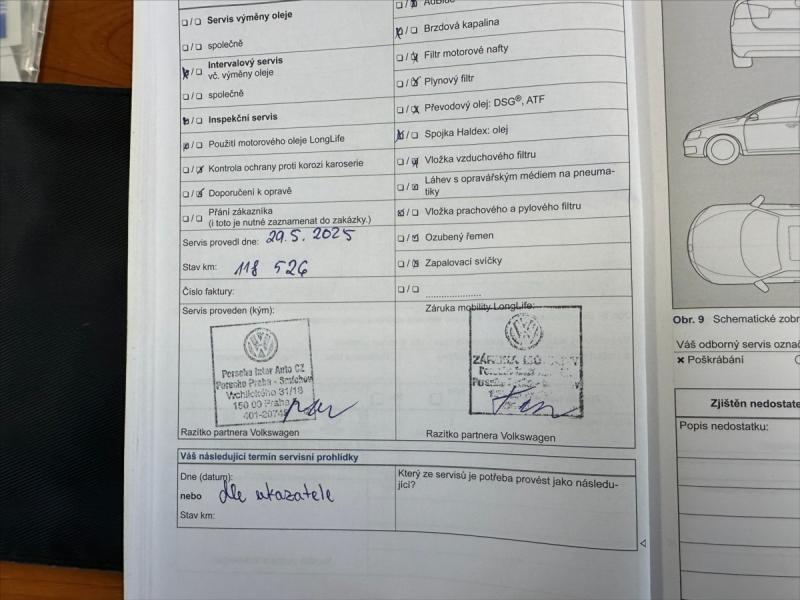 ❑/❑ Servis výměny oleje
❑/❑ společně
❑/❑ Intervalový servis
vč. výměny oleje
❑/❑ společně
❑/❑ Inspekční servis
❑/❑ Použití motorového oleje LongLife
❑/❑ Kontrola ochrany proti korozi karoserie
❑/❑ Doporučení k opravě
❑/❑ Přání zákazníka
(i toto je nutné zaznamenat do zakázky.)
Servis provedl dne: 29.5.2025
Stav km: 118 526
Číslo faktury:
Servis proveden (kým):
Porsche Inter Auto CZ
Porsche Praha - Smíchov
Vrchlického 31/18
150 00 Praha
Razítko partnera Volkswagen
❑/❑ AdBlue
❑/❑ Brzdová kapalina
❑/❑ Filtr motorové nafty
❑/❑ Plynový filtr
❑/❑ Převodový olej: DSG®, ATF
❑/❑ Spojka Haldex: olej
❑/❑ Vložka vzduchového filtru
❑/❑ Láhev s opravářským médiem na pneuma-
tiky
❑/❑ Vložka prachového a pylového filtru
❑/❑ Ozubený řemen
❑/❑ Zapalovací svíčky
❑/❑ ......................
Záruka mobility LongLife:
ZÁRUKA MOBILITY
Razítko partnera Volkswagen
Váš následující termín servisní prohlídky
Dne (datum):
nebo dle ukazatele
Stav km:
Který ze servisů je potřeba provést jako následu-
jící?
Obr. 9 Schematické zobr
Váš odborný servis označ
× Poškrábání
Zjištěn nedostate
Popis nedostatku: